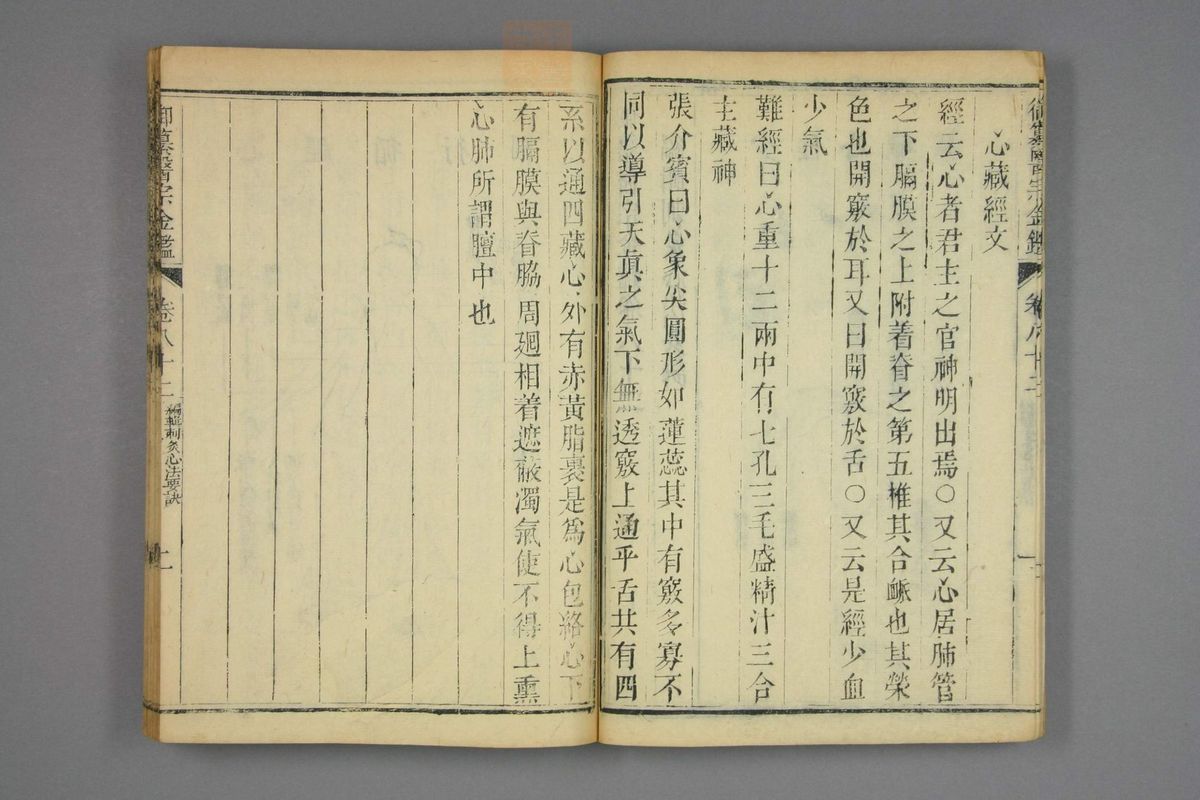 御纂醫宗金鑑 卷八十二
心藏經文
經云心者君主之官神明出焉○又云心居肺管
之下膈膜之上附着脊之第五椎其合脈也其榮
色也開竅於耳又曰開竅於舌○又云是經少血
少氣
難經曰心重十二兩中有七孔三毛盛精汁三合
主藏神
張介賓曰心象尖圓形如蓮蕊其中有竅多寡不
同以導引天真之氣下無透竅上通乎舌共有四
系以通四藏心外有赤黃脂裹是為心包絡心下
有膈膜與脊脇周廻相着遮蔽濁氣使不得上熏
心肺所謂膻中也
御纂醫宗金鑑 卷八十二 編輯刺灸心法要訣